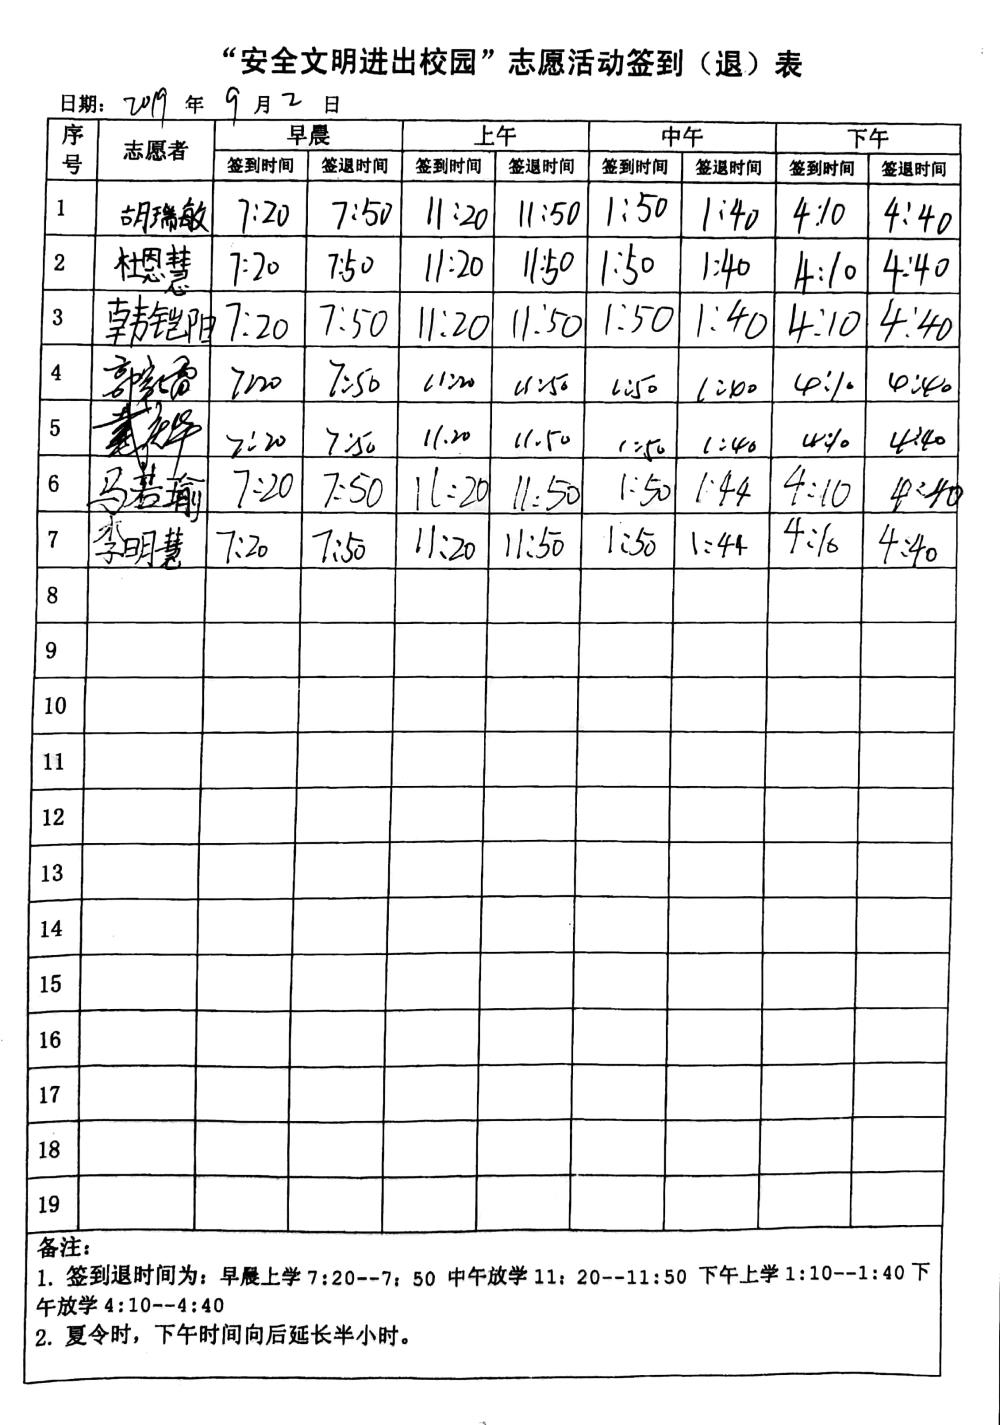 “安全文明进出校园”志愿活动签到（退）表
日期： 2019 年 9 月 2 日
序号 志愿者 早晨 上午 中午 下午
签到时间 签退时间 签到时间 签退时间 签到时间 签退时间 签到时间 签退时间
1 胡瑞敏 7:20 7:50 11:20 11:50 1:50 1:40 4:10 4:40
2 杜恩慧 7:20 7:50 11:20 11:50 1:50 1:40 4:10 4:40
3 韩铠阳 7:20 7:50 11:20 11:50 1:50 1:40 4:10 4:40
4 7:20 7:50 11:20 11:50 1:50 1:40 4:10 4:40
5 7:20 7:50 11.20 11.50 1:50 1:40 4:10 4:40
6 马若瑜 7:20 7:50 11:20 11:50 1:50 1:44 4:10 4:40
7 李明慧 7:20 7:50 11:20 11:50 1:50 1:44 4:10 4:40
8
9
10
11
12
13
14
15
16
17
18
19
备注：
1. 签到退时间为：早晨上学 7:20--7；50 中午放学 11；20--11:50 下午上学 1:10--1:40 下
午放学 4:10--4:40
2. 夏令时，下午时间向后延长半小时。